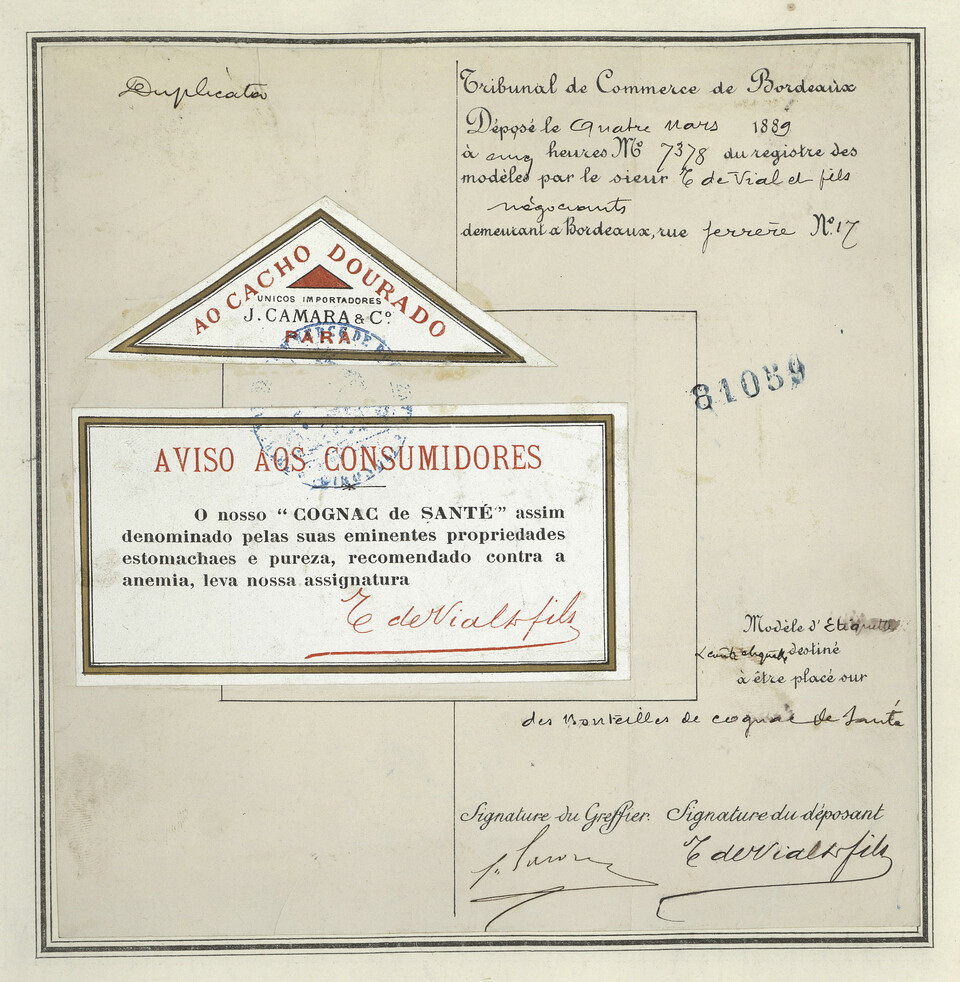 Duplicata
Tribunal de Commerce de Bordeaux
Déposé le quatre mars 1889
à cinq heures No 7378 du registre des
modèles par le sieur E de Vial et fils
négociants
demeurant a Bordeaux, rue ferrère No. 17
AO CACHO DOURADO
UNICOS IMPORTADORES
J. CAMARA & Co.
PARÁ
81059
AVISO AOS CONSUMIDORES
O nosso “ COGNAC de SANTÉ ” assim
denominado pelas suas eminentes propriedades
estomachaes e pureza, recomendado contra a
anemia, leva nossa assignatura
E de Vial & fils
Modèle d'Etiquette
destiné
à être placé sur
des Bouteilles de cognac de Santé
Signature du Greffier. Signature du déposant
E de Vial & fils